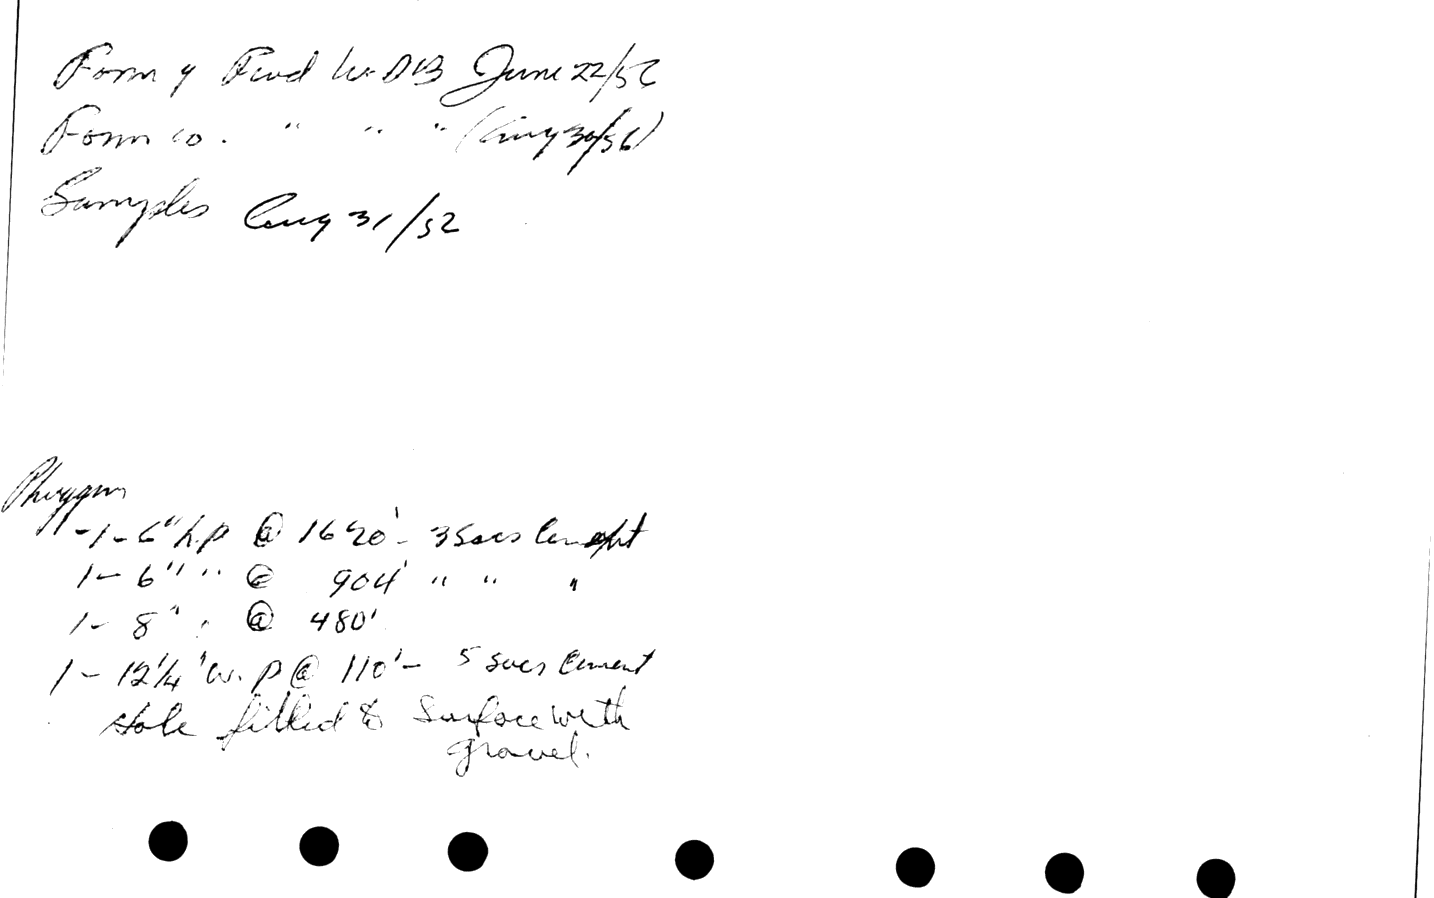 Form 9 Fwd W. DB June 22/56
Form 10. " " " (Aug 30/56)
Samples Aug 31/52
Plugging
-1- 6" h.p @ 1690' - 3 Sacs Cement
1- 6" " @ 904' " " "
1- 8" " @ 480'
1- 12 1/4" w. p @ 110' - 5 sacs Cement
Hole filled to Surface with
gravel.